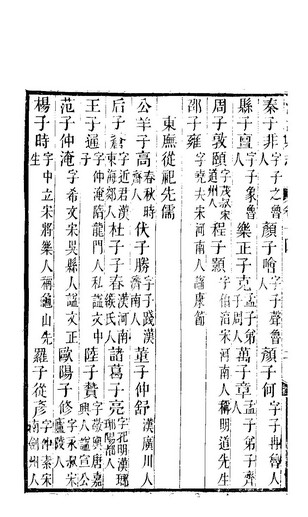 秦子非字子之魯人 顏子噲字子聲魯人 顏子何字子冉魯人
縣子亶字子象魯人 樂正子克孟子弟子周人 萬子章孟子弟子齊人
周子敦頤字茂叔宋道州人 程子顥字伯淳宋河南人稱明道先生
邵子雍字堯夫宋河南人謚康節
東廡從祀先儒
公羊子高春秋時齊人 伏子勝字子賤漢濟南人 董子仲舒漢廣川人
后子蒼字近君漢東海郯人 杜子子春漢河南緱氏人 諸葛子亮字孔明漢瑯琊陽都人
王子通字仲淹隋龍門人私謚文中 陸子贄字敬輿唐嘉興人謚宣公
范子仲淹字希文宋吳縣人謚文正 歐陽子修字永叔宋廬陵人
楊子時字中立宋將樂人稱龜山先生 羅子從彥字仲素宋南劍州人